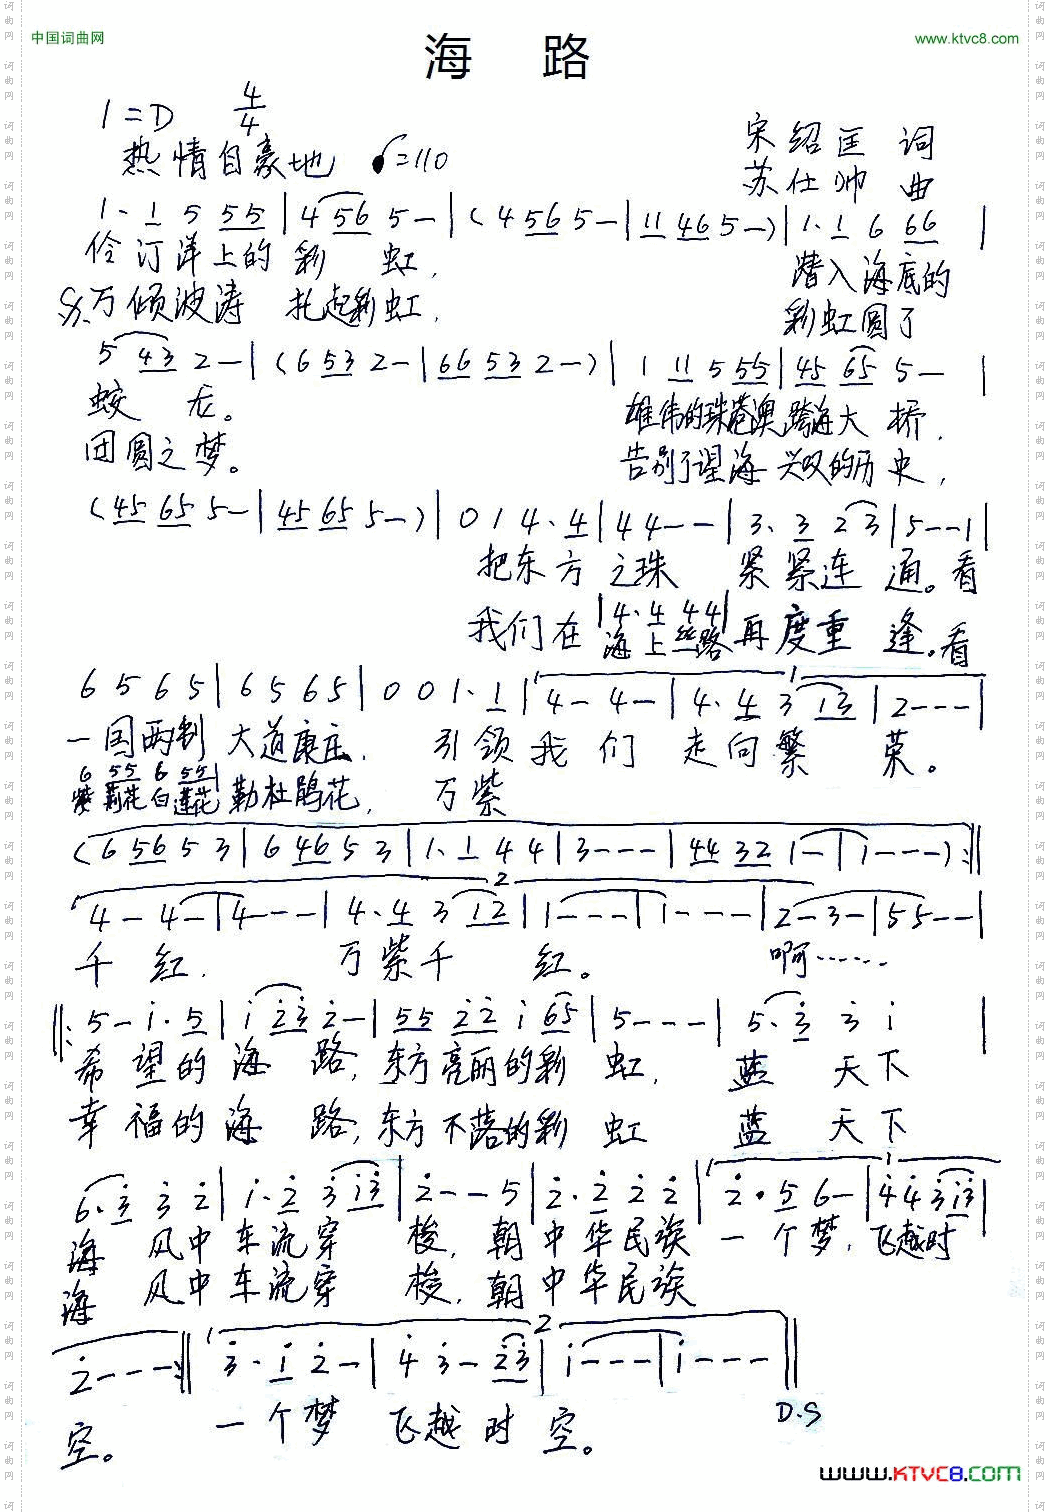 中国词曲网
www.ktvc8.com
海 路
1=D 4/4
热情自豪地 ♪=110
宋绍匡 词
苏仕帅 曲
1· 1 5 55 | 4 56 5 — | (4 56 5 — | 11 46 5 —) | 1· 1 6 66 |
伶仃洋上的彩 虹, 潜入海底的
万倾波涛 托起彩虹, 彩虹圆了
5 43 2 — | (6 53 2 — | 66 53 2 —) | 1 11 5 55 | 45 65 5 — |
蛟 龙。 雄伟的珠港澳跨海大 桥,
团圆之梦。 告别了望海兴叹的历史,
(45 65 5 — | 45 65 5 —) | 0 1 4· 4 | 4 4 — — | 3· 3 2 3 | 5 — — 1 |
把东方之珠 紧紧连 通。看
|4· 4 44|
我们在海上丝路再度重 逢。看
6 5 6 5 | 6 5 6 5 | 0 0 1· 1 | 4 — 4 — | 4· 4 3 13 | 2 — — — |
一国两制 大道康庄, 引领我们 走向繁 荣。
6 55 6 55 |
紫荆花白莲花勒杜鹃花, 万紫
(6 56 5 3 | 6 46 5 3 | 1· 1 4 4 | 3 — — — | 44 32 1 — | 1 — — —) :||
2
4 — 4 — | 4 — — — | 4· 4 3 12 | 1 — — — | 1 — — — | 2 — 3 — | 5 5 — — |
千 红, 万紫千 红。 啊……
||: 5 — i· 5 | i 23 2 — | 55 22 i 65 | 5 — — — | 5· 3 3 i |
希望的海 路,东方亮丽的彩 虹, 蓝 天下
幸福的海 路,东方不落的彩 虹 蓝 天下
6· 3 3 2 | i· 2 3 i3 | 2 — — 5 | 2· 2 2 2 | 2· 5 6 — | 4 4 3 i3 |
海 风中车流穿 梭,朝中华民族一个梦,飞越时
海 风中车流穿 梭,朝中华民族
2 — — — :|| 3· i 2 — | 4 3 — 23 | i — — — | i — — — ||
D.S
空。 一个梦 飞越时 空。
www.KTVC8.com